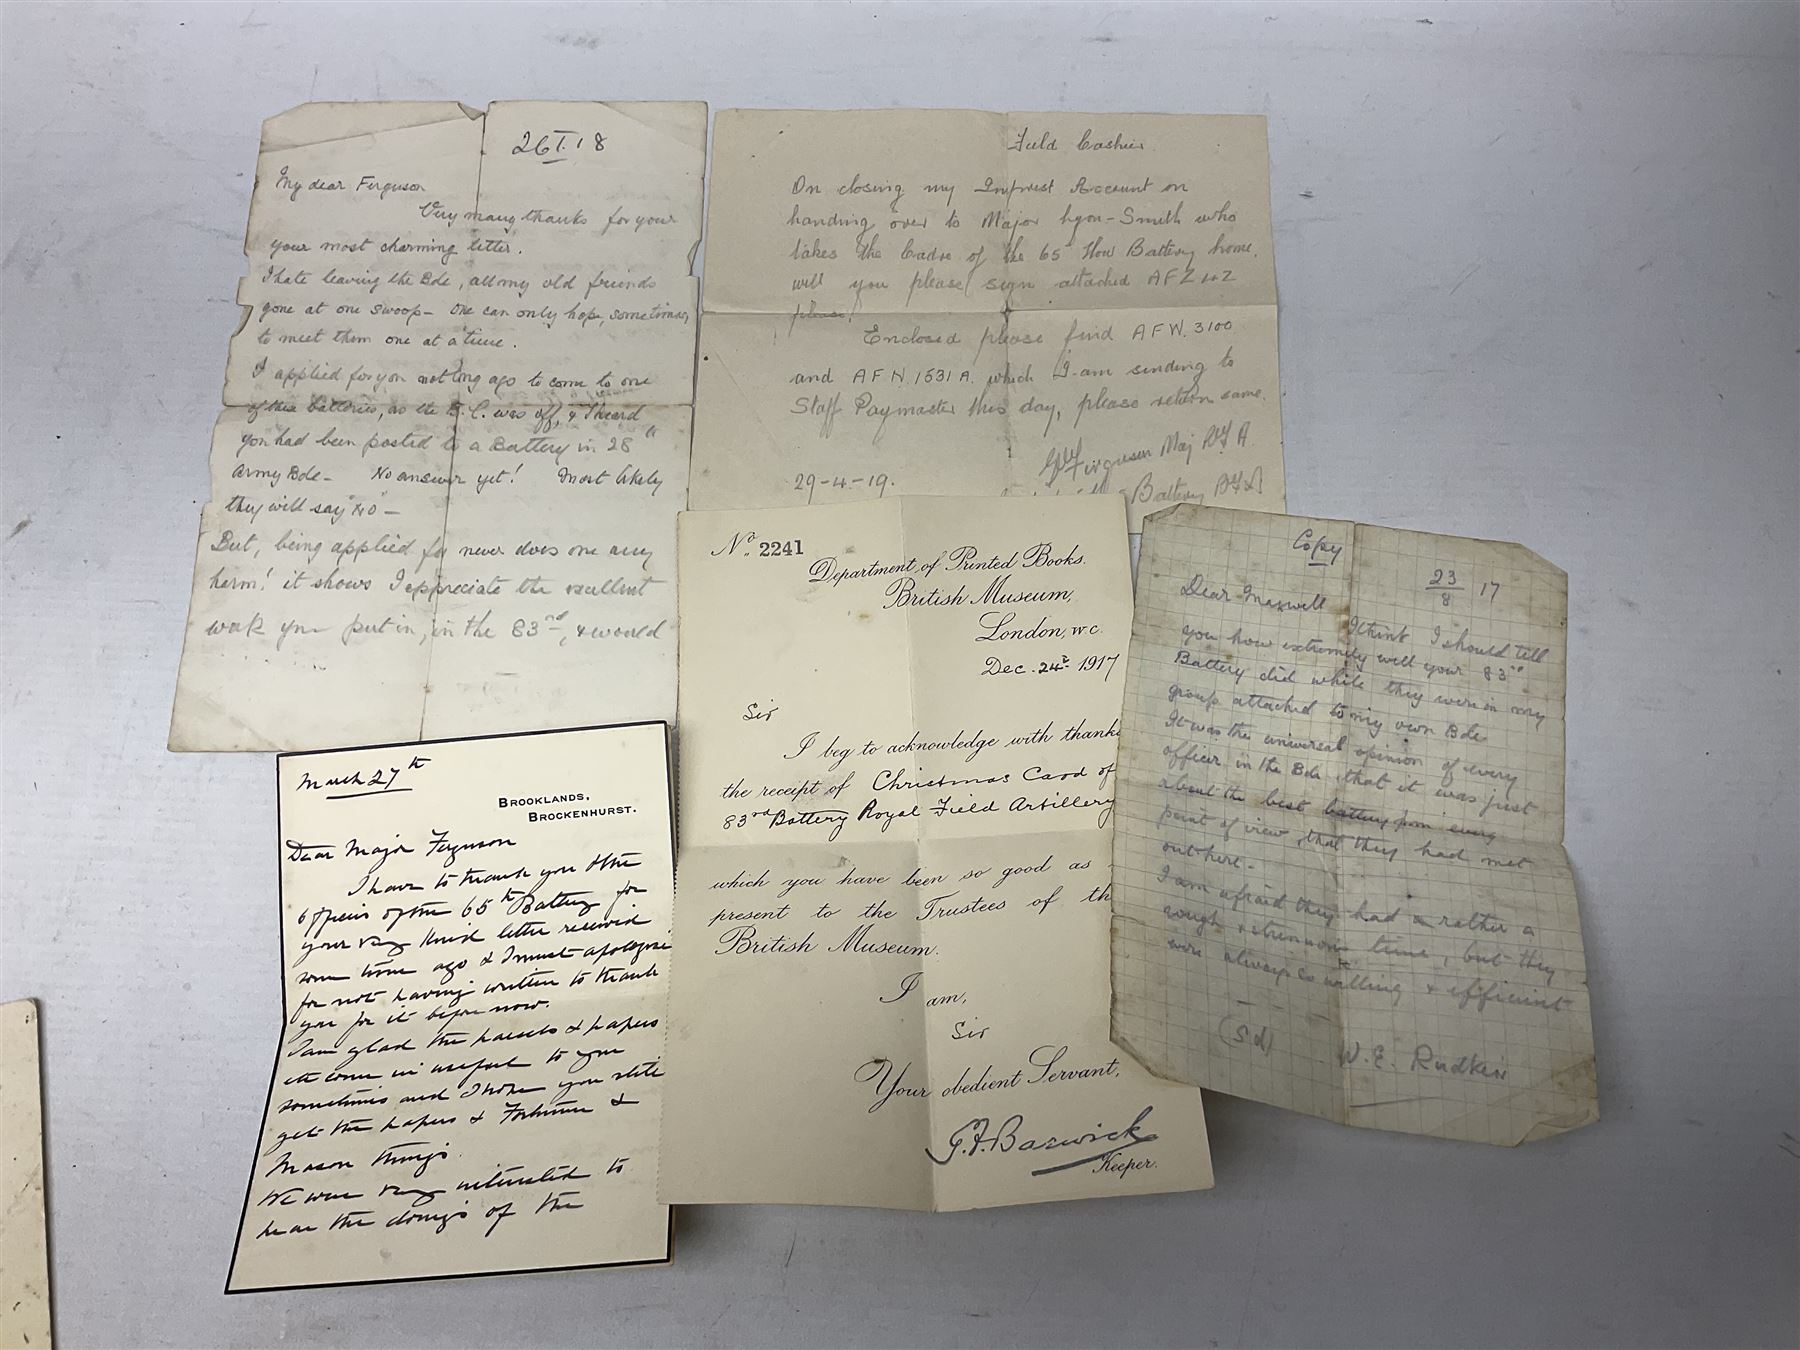 26 I. 18
My dear Ferguson
Very many thanks for your
your most charming letter.
I hate leaving the Bde, all my old friends
gone at one swoop - One can only hope, sometimes,
to meet them one at a time.
I applied for you not long ago to come to one
of these batteries, as the B.C. was off, & I heard
you had been posted to a Battery in 28th
Army Bde - No answer yet! Most likely
they will say "No" -
But, being applied for never does one any
harm! it shows I appreciate the excellent
work you put in, in the 83rd, & would
Field Cashier.
On closing my Imprest Account on
handing over to Major Lyon-Smith who
takes the Cadre of the 65 How Battery home,
will you please sign attached AFZ
please.
Enclosed please find AFW. 3100
and AFN. 1531A. which I am sending to
Staff Paymaster this day, please return same.
Ferguson Maj RFA
29-4-19.
Battery
No. 2241
Department of Printed Books.
British Museum,
London, W.C.
Dec. 24th 1917
Sir
I beg to acknowledge with thanks
the receipt of Christmas Card of
83rd Battery Royal Field Artillery
which you have been so good as
present to the Trustees of th
British Museum.
I am,
Sir
Your obedient Servant,
G.F. Barwick
Keeper.
Copy
23/8 17
Dear Maxwell
I think I should tell
you how extremely well your 83rd
Battery did while they were in my
group attached to my own Bde
It was the universal opinion of every
officer in the Bde that it was just
about the best battery from every
point of view, that they had met
out here -
I am afraid they had a rather a
rough & strenuous time, but they
were always so willing & efficient
(Sd) W. E. Rudkin
March 27th
BROOKLANDS,
BROCKENHURST.
Dear Major Ferguson
I have to thank you & the
officers of the 65th Battery for
your very kind letter received
some time ago & I must apologise
for not having written to thank
you for it before now.
I am glad the parcels & papers
etc come in useful to you
sometimes and I hope you still
get the papers & Fortnum &
Mason things.
We were very interested to
hear the doings of the